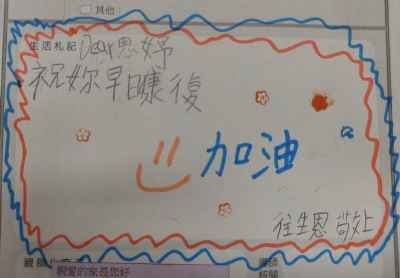 其他:
生活札記 Dear 思妤
祝妳早日康復
加油
恩 敬上
親愛的家長您好